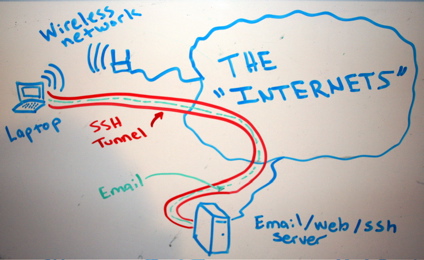 Wireless
network
THE
"INTERNETS"
Laptop
SSH
Tunnel
Email
Email/web/ssh
server